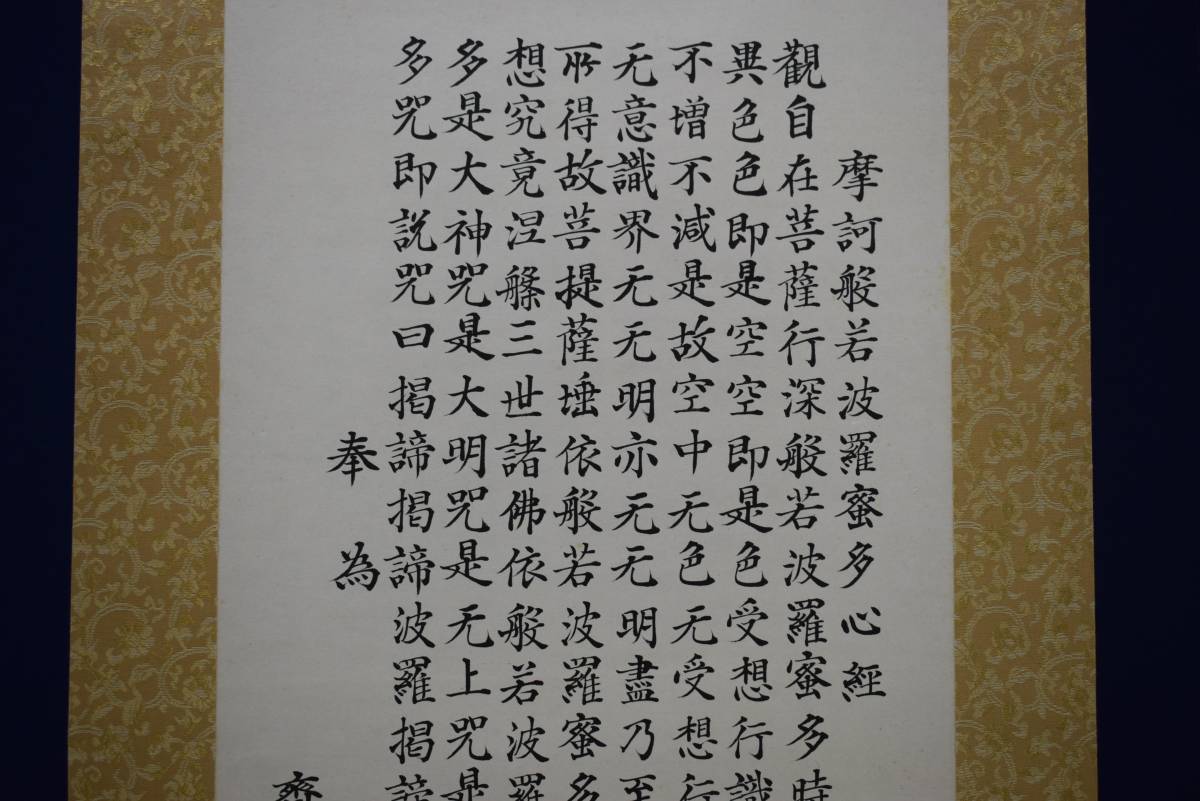 摩訶般若波羅蜜多心経
觀自在菩薩行深般若波羅蜜多時
異色色即是空空即是色受想行識
不增不減是故空中无色无受想行
无意識界无无明亦无无明盡乃至
所得故菩提薩埵依般若波羅蜜多
想究竟涅槃三世諸佛依般若波羅
多是大神咒是大明咒是无上咒是
多咒即説咒曰揭諦揭諦波羅揭諦
奉為
齊